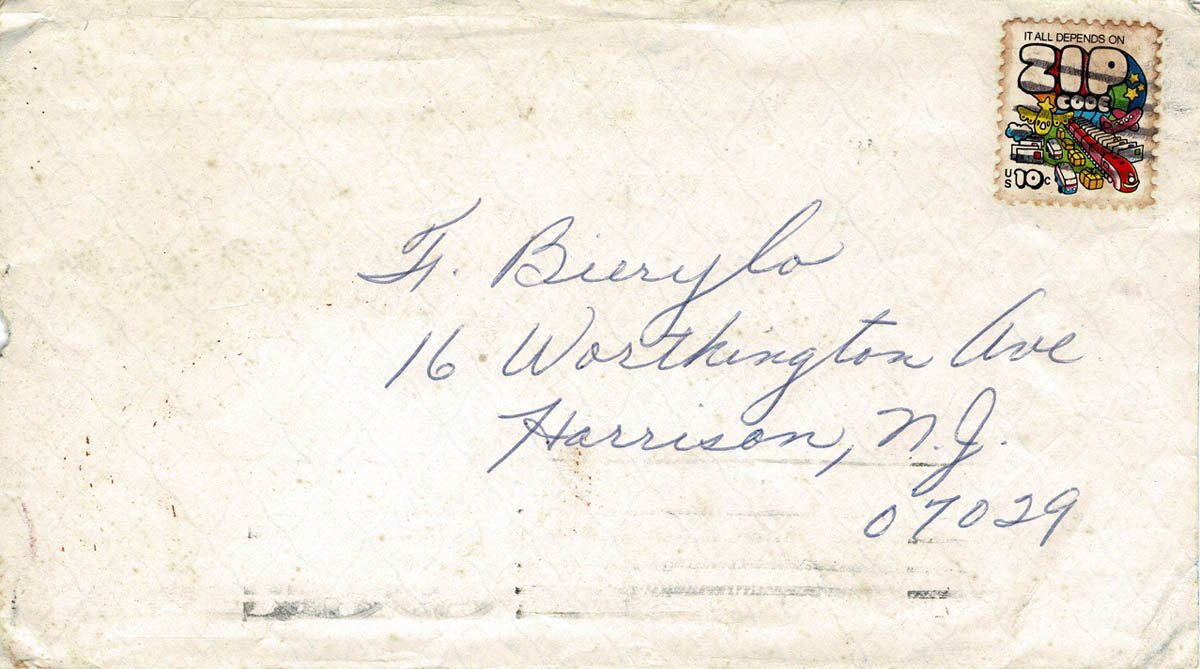 IT ALL DEPENDS ON
ZIP
CODE
US 10c
F. Bierylo
16 Worthington Ave
Harrison, N.J.
07029